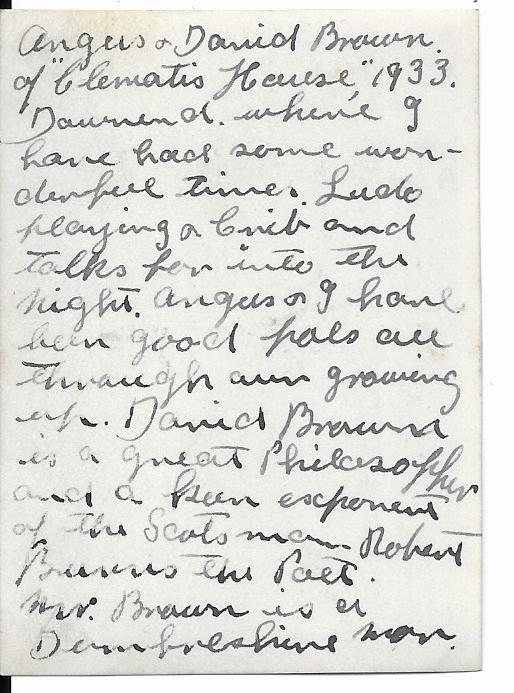 Angus & David Brown.
of "Clematis House," 1933.
Downend. where I
have had some won-
derful times. Ludo
playing & Crib and
talks far into the
night. Angus & I have
been good pals all
through our growing
up. David Brown
is a great Philosopher
and a keen exponent
of the Scotsman Robert
Burns the Poet.
Mr. Brown is a
Dumfresshire man.